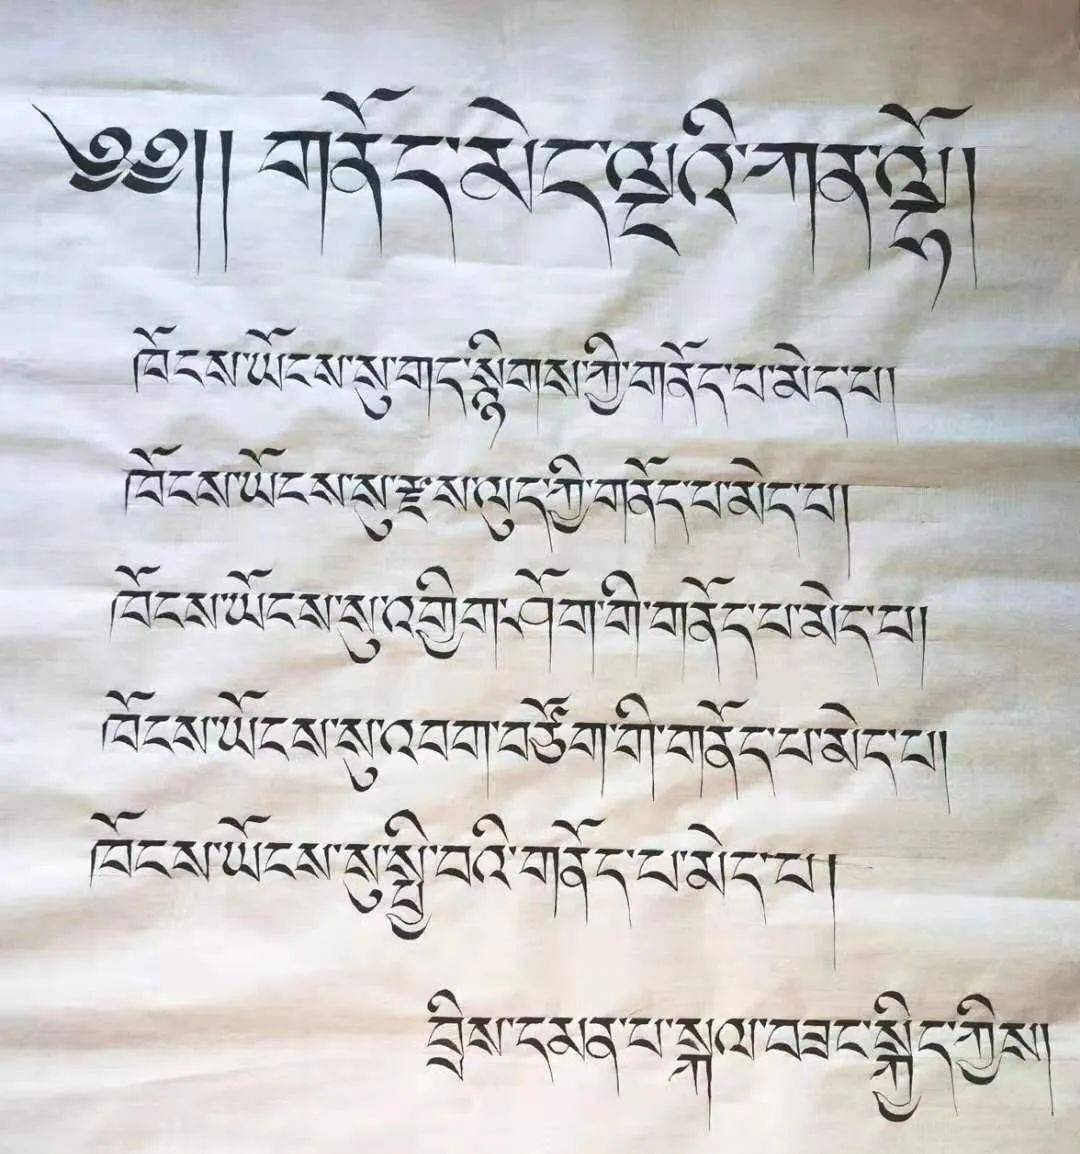 ༄༅།། གནོད་མེད་ལྔའི་ཀན་ལྷོ།
ཁོངས་ཡོངས་སུ་གད་སྙིགས་ཀྱི་གནོད་པ་མེད་པ།
ཁོངས་ཡོངས་སུ་རྫས་ལུད་ཀྱི་གནོད་པ་མེད་པ།
ཁོངས་ཡོངས་སུ་འགྱིག་ཤོག་གི་གནོད་པ་མེད་པ།
ཁོངས་ཡོངས་སུ་འབག་བཙོག་གི་གནོད་པ་མེད་པ།
ཁོངས་ཡོངས་སུ་སྤྱི་བའི་གནོད་པ་མེད་པ།
བྲིས་དམན་པ་སྐལ་བཟང་སྐྱིད་ཀྱིས།